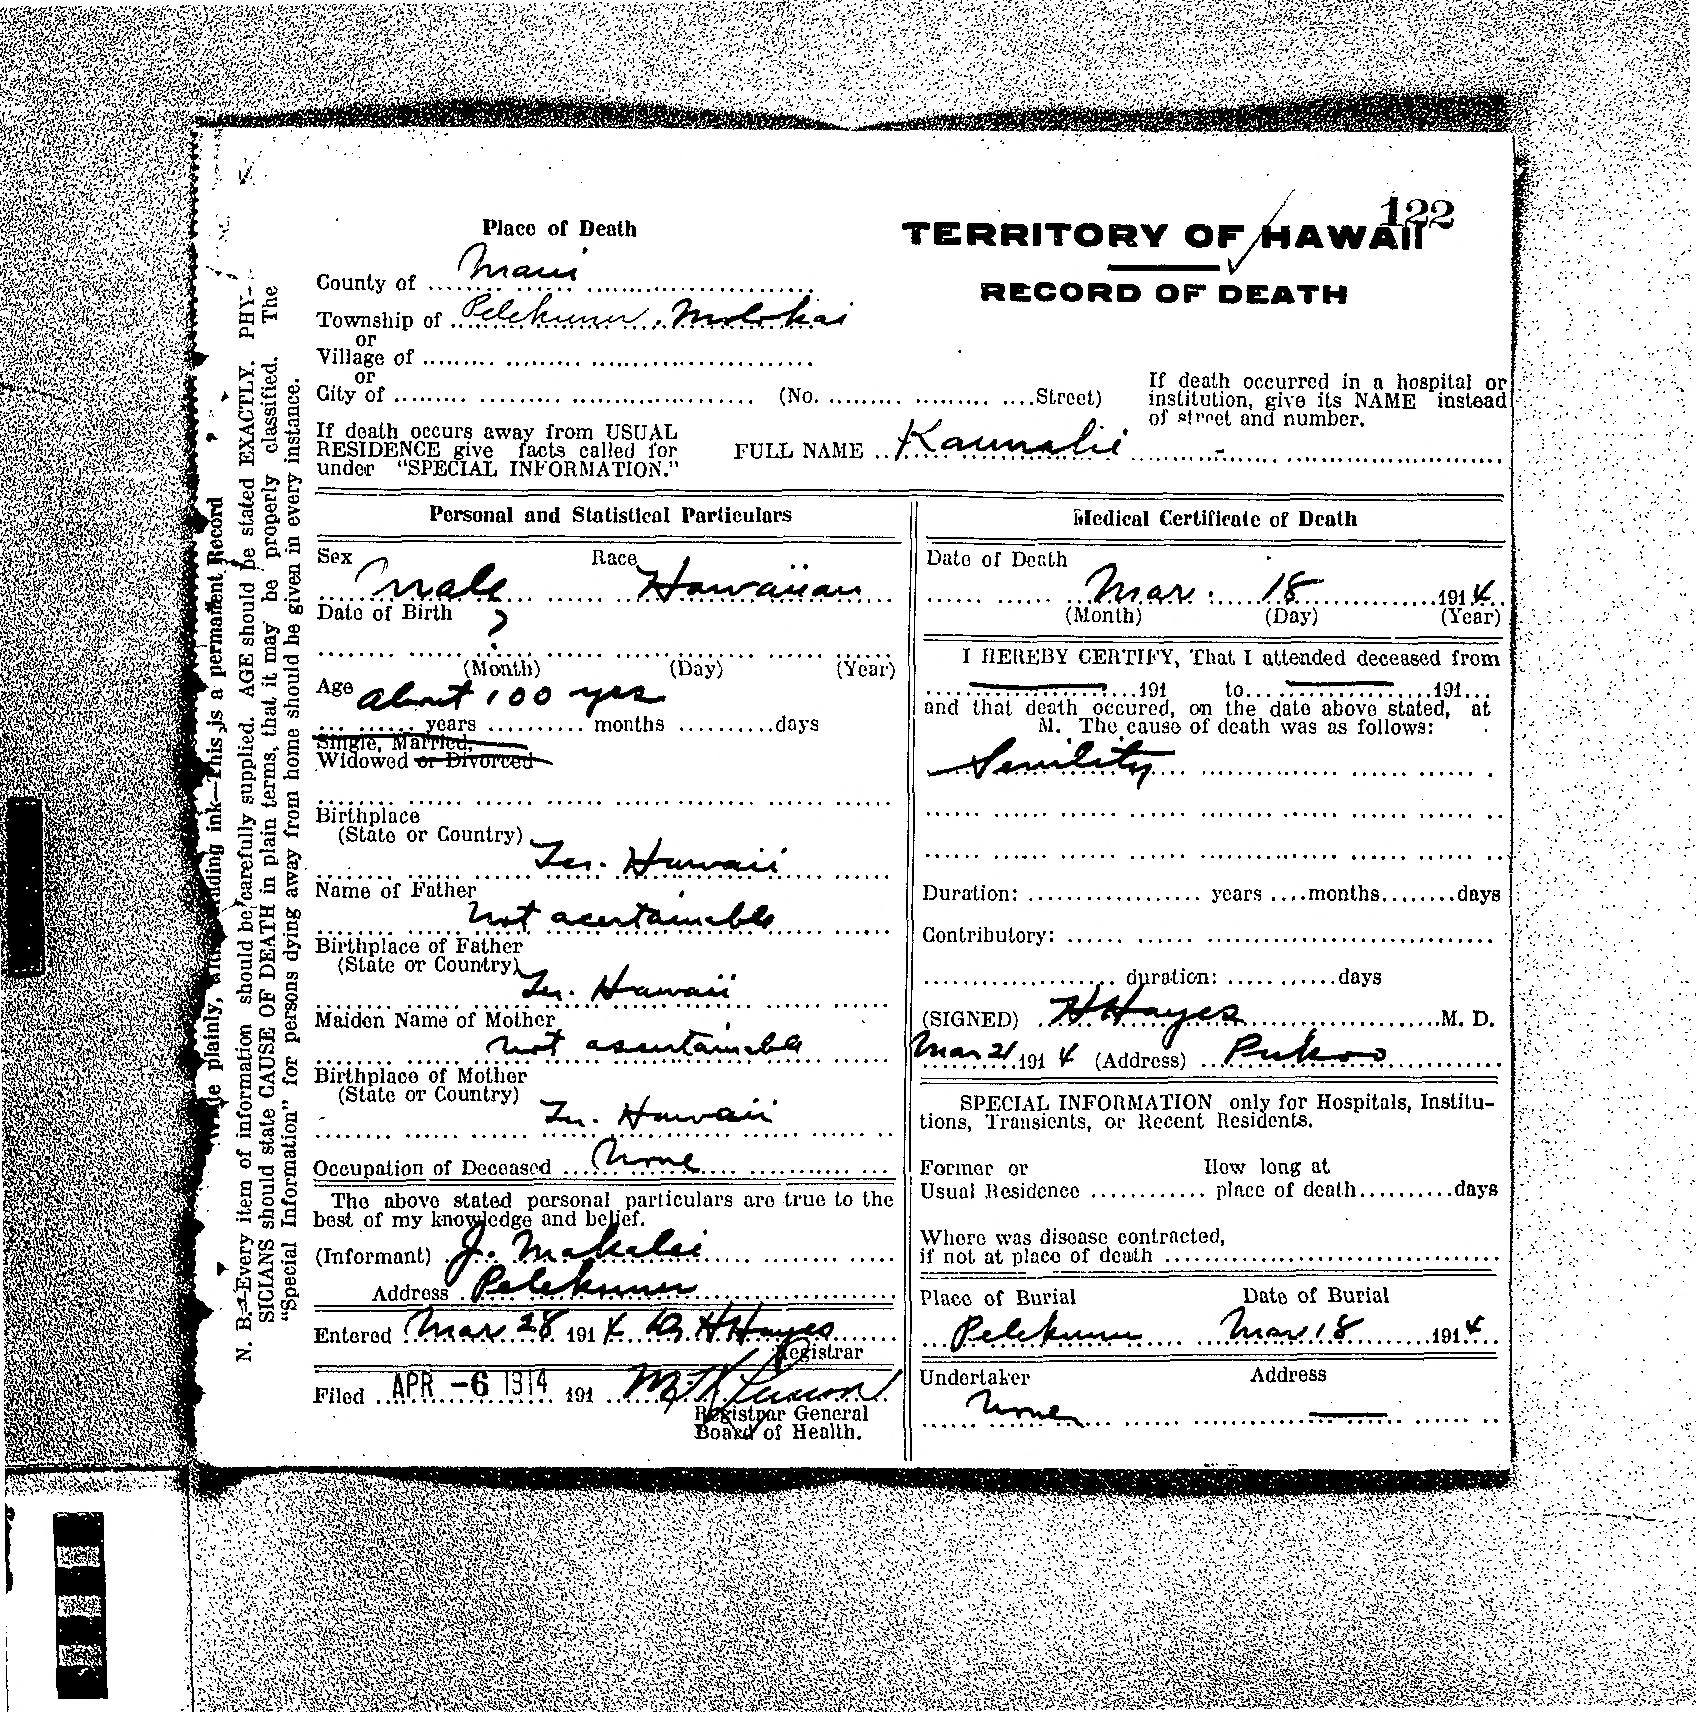 122
Place of Death
TERRITORY OF HAWAII
RECORD OF DEATH
County of Maui
Township of Pelekunu, Molokai
or
Village of
or
City of (No. Street)
If death occurred in a hospital or
institution, give its NAME instead
of street and number.
If death occurs away from USUAL
RESIDENCE give facts called for
under "SPECIAL INFORMATION."
FULL NAME Kaunalii
Personal and Statistical Particulars
Sex Male Race Hawaiian
Date of Birth ?
(Month) (Day) (Year)
Age about 100 yrs
years months days
Single, Married,
Widowed or Divorced
Birthplace
(State or Country)
Ter. Hawaii
Name of Father
not acertainable
Birthplace of Father
(State or Country)
Ter. Hawaii
Maiden Name of Mother
not ascertainable
Birthplace of Mother
(State or Country)
Ter. Hawaii
Occupation of Deceased None
The above stated personal particulars are true to the
best of my knowledge and belief.
(Informant) J. Makalii
Address Pelekunu
Entered Mar 28 1914 HHayes
Registrar
Filed APR -6 1914 191
Registrar General
Board of Health.
Medical Certificate of Death
Date of Death
Mar. 18 1914
(Month) (Day) (Year)
I HEREBY CERTIFY, That I attended deceased from
191 to 191
and that death occured, on the date above stated, at
M. The cause of death was as follows:
Senility
Duration: years months days
Contributory:
duration: days
(SIGNED) HHayes M. D.
Mar 21 1914 (Address) Pukoo
SPECIAL INFORMATION only for Hospitals, Institu-
tions, Transients, or Recent Residents.
Former or How long at
Usual Residence place of death days
Where was disease contracted,
if not at place of death
Place of Burial Date of Burial
Pelekunu Mar 18 1914
Undertaker Address
None
plainly, ink—This is a permanent Record
N. B.—Every item of information should be carefully supplied. AGE should be stated EXACTLY. PHY-
SICIANS should state CAUSE OF DEATH in plain terms, that it may be properly classified. The
"Special Information" for persons dying away from home should be given in every instance.